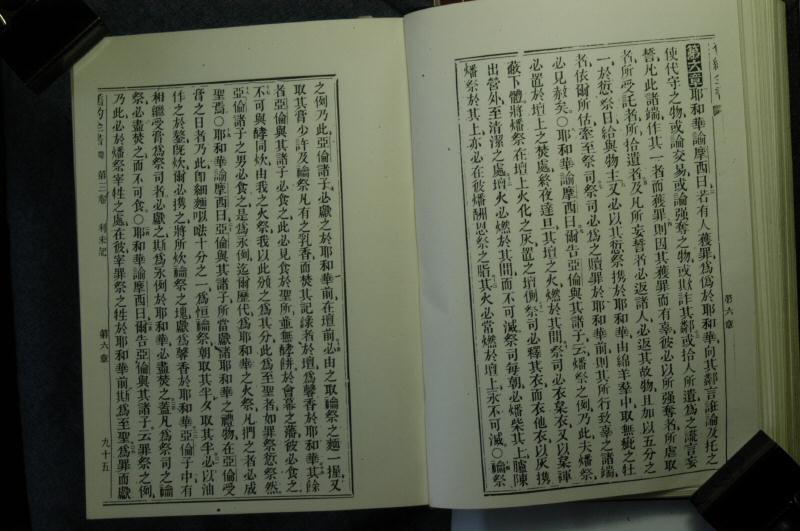 第六章
第六章耶和華諭摩西曰若有人獲罪爲僞於耶和華向其鄰言誑諭及托之
使代守之物或論交易或論强奪之物或欺詐其鄰或拾人所遺爲之謊言妄
誓凡此諸端作其一者而獲罪則因其獲罪而有辜彼必以所强奪者所虐取
者所受託者所拾遺者及凡所妄誓者必返諸人必返其故物且加以五分之
一於愆祭日給與物主又必以其愆祭携於耶和華由綿羊羣中取無疵之牡
者依爾所估率至祭司祭司必爲之贖罪於耶和華前則其所行致辜之諸端
必見赦矣○耶和華諭摩西曰爾告亞倫與其諸子云燔祭之例乃此夫燔祭
必置於壇上之焚處終夜達旦其壇之火燃於其間祭司必衣枲衣又以枲褌
蔽下體將燔祭在壇上火化之灰置之壇側祭司必釋其衣而衣他衣以灰携
出營外至清潔之處壇火必燃於其間而不可滅祭司每朝必燔柴其上臚陳
燔祭於其上亦必在彼燔酬恩祭之脂其火必當燃於壇上永不可滅○禴祭
之例乃此亞倫諸子必獻之於耶和華前在壇前必由之取禴祭之麵一握又
取其膏少許及禴祭凡有之乳香而焚其記錄者於壇爲馨香於耶和華其餘
者亞倫與其諸子必食之此必見食於聖所並無酵餅於會幕之藩彼必食之
不可與酵同炊由我之火祭我以此頒之爲其分此爲至聖者如罪祭愆祭然
亞倫諸子之男必食之是爲永例迄爾歷代爲耶和華之火祭凡捫之者必成
聖焉○耶和華諭摩西曰亞倫與其子所當獻諸耶和華之禮物在亞倫受
膏之日者乃此卽細麵㕽𠺕十分之一爲恒禴祭朝取其半夕取其半必以油
作之於鏊旣炊爾必携之將所炊禴祭之塊獻爲馨香於耶和華亞倫子中有
相繼受膏爲祭司者必獻之斯爲永例於耶和華必盡焚之蓋凡爲祭司之禴
祭必盡焚之而不可食○耶和華諭摩西曰爾告亞倫與其諸子云罪祭之例
乃此必於燔祭宰牲之處在彼宰罪祭之牲於耶和華前斯爲至聖爲罪而獻
第三卷 利未記 第六章 九十五